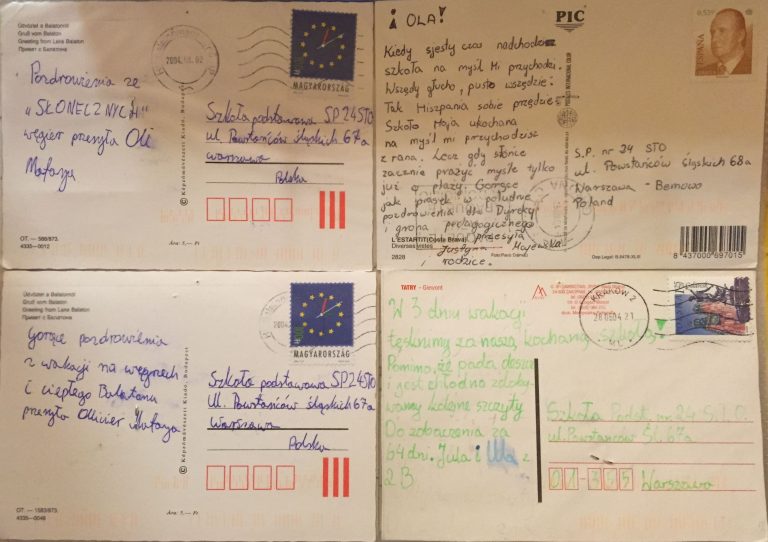 Üdvözlet a Balatonról
Gruß vom Balaton
Greeting from Lake Balaton
Привет с Балатона
2004.
MAGYARORSZÁG
Pozdrowienia ze
„SŁONECZNYCH"
węgier przesyła Oli
Mataya
Szkoła podstawowa SP 24STO
ul. Powstańców śląskich 67a
warszawa
Polska
© Képzőművészeti Kiadó, Budapest
OT. — 588/973.
4335-0012
Ára: 5,— Ft
¡A OLA!
PIC
0,53€
ESPAÑA
Kiedy sjesty czas nadchodzi
szkoła na myśl Mi przychodzi.
Wszędy głucho, pusto wszędzie:
Tak Hiszpania sobie przędzie.
Szkoła Moja ukochana
na myśl mi przychodzisz
z rana. Lecz gdy słońce
zacznie prażyć myślę tylko
już o plaży. Gorące
jak piasek w południe
pozdrowienia dla Dyrekcji
i grona pedagogicznego
przesyła
Justyna Majewska
i rodzice.
S.P. nr 24 STO
ul. Powstańców Śląskich 68a
Warszawa - Bemowo
Poland
L'ESTARTIT (Costa Brava)
Diverses vistes
2828
8 437000 697015
Üdvözlet a Balatonról
Gruß vom Balaton
Greeting from Lake Balaton
Привет с Балатона
2004.
MAGYARORSZÁG
Gorące pozdrowienia
z wakacji na węgrzech
i ciepłego Balatonu
przesyła Olivier Mataya
Szkoła podstawowa SP24STO
Ul. Powstańców śląskich 67a
Warszawa
Polska
© Képzőművészeti Kiadó, Budapest
OT. — 1583/873.
4335-0048
Ára: 5,— Ft
TATRY - Giewont
KRAKÓW 2
28 0604 21
W 3 dniu wakacji
tęsknimy za naszą kochaną szkołą.
Pomimo, że pada deszcz
i jest chłodno zdoby-
wamy kolejne szczyty
Do zobaczenia za
64 dni. Jula i Ula z
2B
Szkoła Podst. nr 24 S.T.O.
ul. Powstańców Śl. 67a
01-355 Warszawa